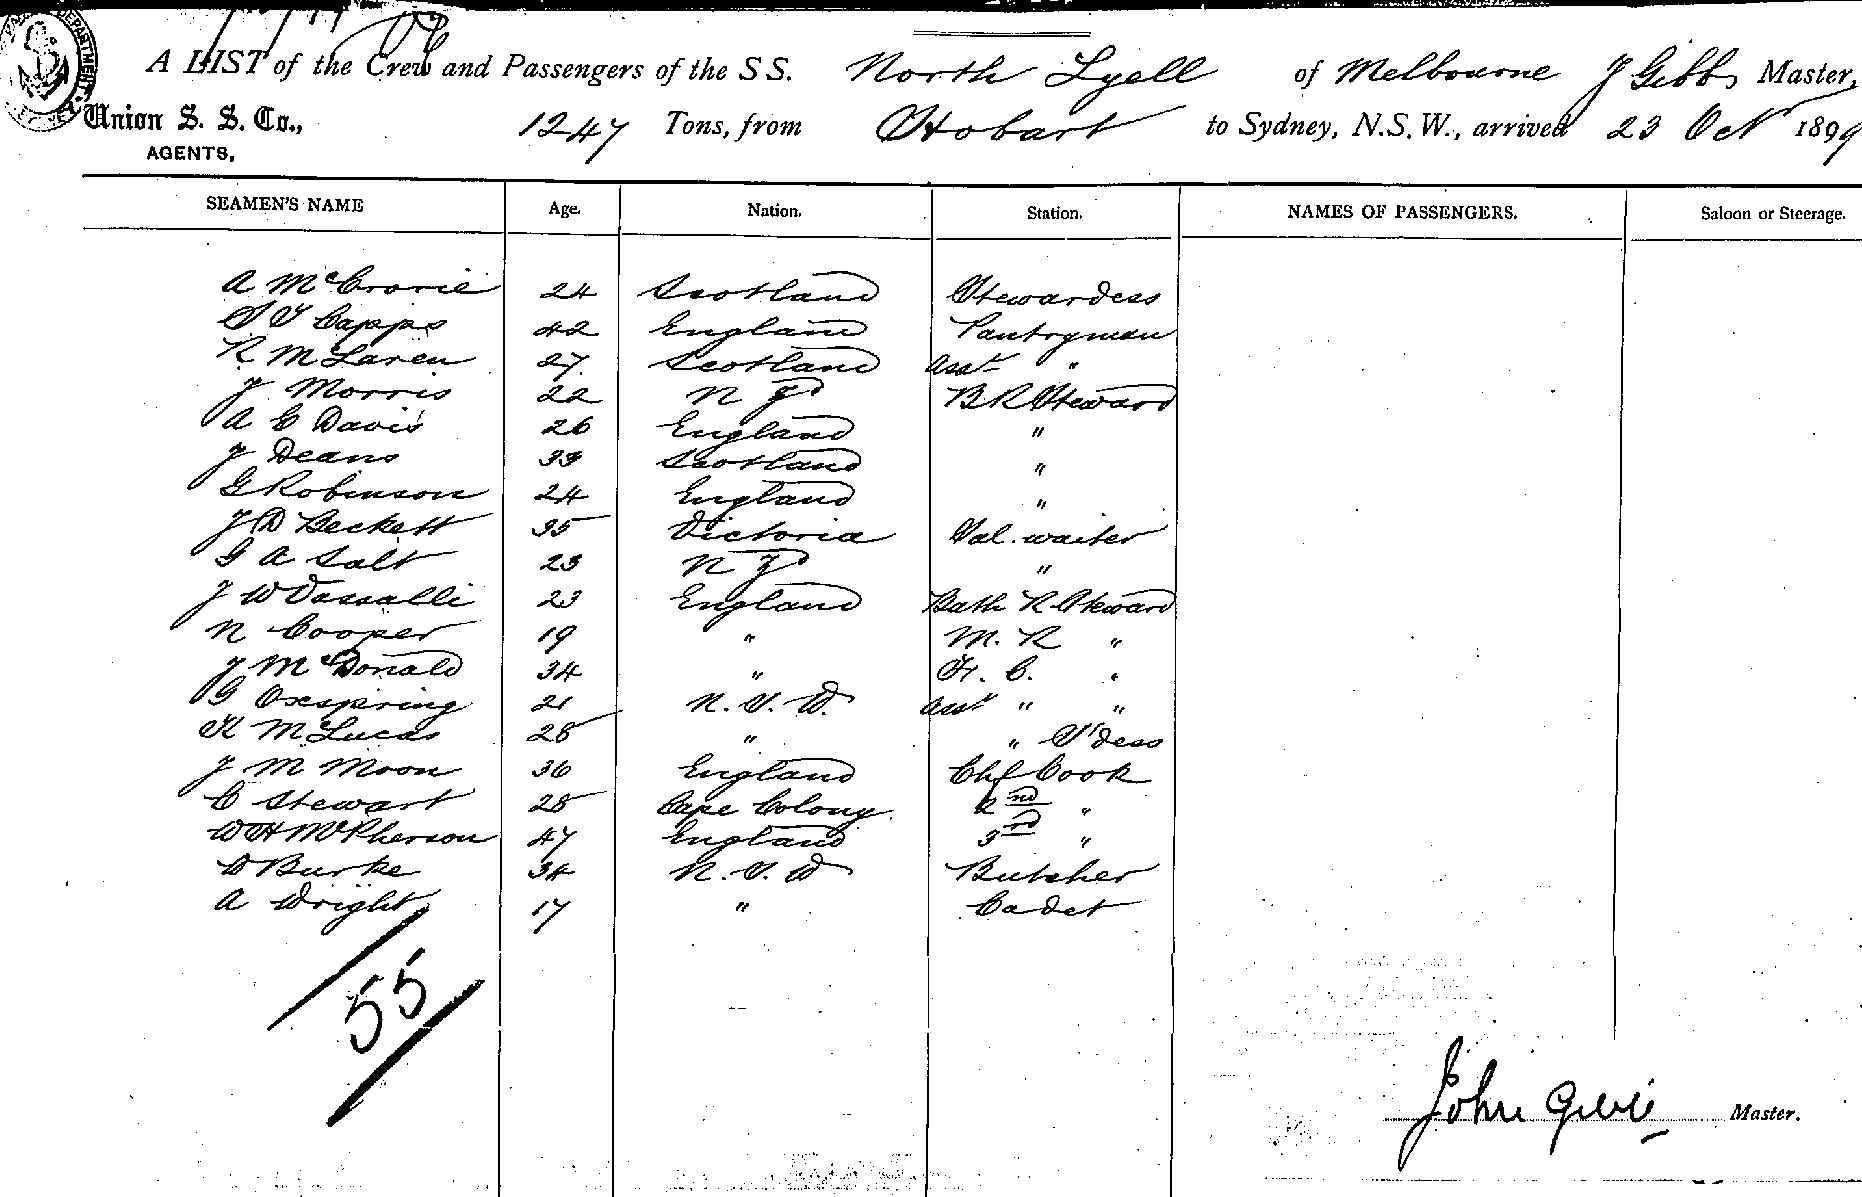 A LIST of the Crew and Passengers of the S S. North Lyell of Melbourne J Gibbs Master,
Union S. S. Co., 1247 Tons, from Hobart to Sydney, N.S.W., arrived 23 Oct 1899
AGENTS,
SEAMEN'S NAME Age. Nation. Station. NAMES OF PASSENGERS. Saloon or Steerage.
A McCrorie 24 Scotland Stewardess
S T Capps 42 England Pantryman
R McLaren 27. Scotland Asst "
J Morris 22 N Zd B R Steward
A C Davis 26 England "
J Deans 33 Scotland "
G Robinson 24 England "
J D Beckett 35 Victoria Sal. waiter
G A Salt 23 N Zd "
J W Vassalli 23 England Bath R Steward
N Cooper 19 " M. R "
J McDonald 34 " F. C. "
G Oxspring 21 N. S. W. Asst " "
K McLucas 28 " " S'dess
J M Moon 36 England Chf Cook
C Stewart 28 Cape Colony. 2nd "
W H McPherson 47 England 3rd "
D Burke 34 N. S. W Butcher
A Wright 17 " Cadet
55
John Gibb Master.